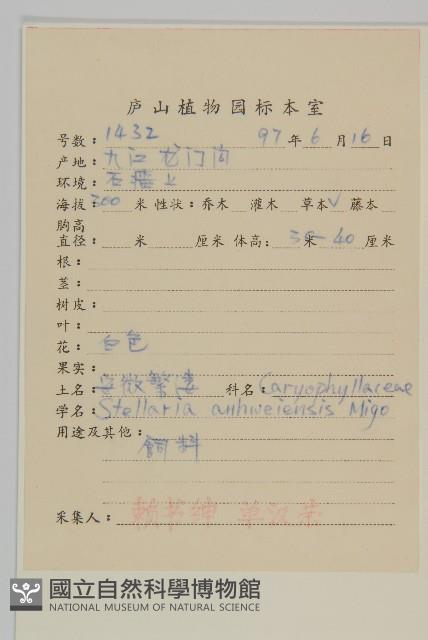 庐山植物园标本室
号数: 1432 97年6月16日
产地: 九江龙门沟
环境: 石墙上
海拔: 300 米 性状: 乔木 灌木 草本✓ 藤本
胸高
直径: 米 厘米 体高: 30 米 40 厘米
根:
茎:
树皮:
叶:
花: 白色
果实:
土名: 安徽繁缕 科名: Caryophyllaceae
学名: Stellaria anhweiensis Migo
用途及其他:
饲料
采集人: 赖书绅 单汉荣
國立自然科學博物館
NATIONAL MUSEUM OF NATURAL SCIENCE